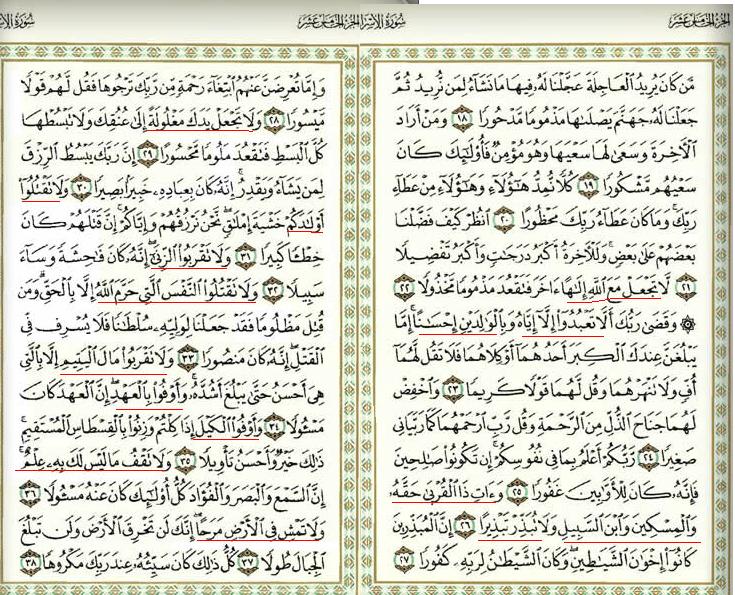 الجزء الخامس عشر
سورة الإسراء
مَّن كَانَ يُرِيدُ ٱلْعَاجِلَةَ عَجَّلْنَا لَهُۥ فِيهَا مَا نَشَآءُ لِمَن نُّرِيدُ ثُمَّ
جَعَلْنَا لَهُۥ جَهَنَّمَ يَصْلَىٰهَا مَذْمُومًا مَّدْحُورًا ١٨ وَمَنْ أَرَادَ
ٱلْآخِرَةَ وَسَعَىٰ لَهَا سَعْيَهَا وَهُوَ مُؤْمِنٌ فَأُو۟لَٰٓئِكَ كَانَ
سَعْيُهُم مَّشْكُورًا ١٩ كُلًّا نُّمِدُّ هَٰٓؤُلَآءِ وَهَٰٓؤُلَآءِ مِنْ عَطَآءِ
رَبِّكَ وَمَا كَانَ عَطَآءُ رَبِّكَ مَحْظُورًا ٢٠ ٱنظُرْ كَيْفَ فَضَّلْنَا
بَعْضَهُمْ عَلَىٰ بَعْضٍ وَلَلْآخِرَةُ أَكْبَرُ دَرَجَٰتٍ وَأَكْبَرُ تَفْضِيلًا
٢١ لَّا تَجْعَلْ مَعَ ٱللَّهِ إِلَٰهًا ءَاخَرَ فَتَقْعُدَ مَذْمُومًا مَّخْذُولًا ٢٢
۞ وَقَضَىٰ رَبُّكَ أَلَّا تَعْبُدُوٓا۟ إِلَّآ إِيَّاهُ وَبِٱلْوَٰلِدَيْنِ إِحْسَٰنًا إِمَّا
يَبْلُغَنَّ عِندَكَ ٱلْكِبَرَ أَحَدُهُمَآ أَوْ كِلَاهُمَا فَلَا تَقُل لَّهُمَآ
أُفٍّ وَلَا تَنْهَرْهُمَا وَقُل لَّهُمَا قَوْلًا كَرِيمًا ٢٣ وَٱخْفِضْ
لَهُمَا جَنَاحَ ٱلذُّلِّ مِنَ ٱلرَّحْمَةِ وَقُل رَّبِّ ٱرْحَمْهُمَا كَمَا رَبَّيَانِى
صَغِيرًا ٢٤ رَّبُّكُمْ أَعْلَمُ بِمَا فِى نُفُوسِكُمْ إِن تَكُونُوا۟ صَٰلِحِينَ
فَإِنَّهُۥ كَانَ لِلْأَوَّٰبِينَ غَفُورًا ٢٥ وَءَاتِ ذَا ٱلْقُرْبَىٰ حَقَّهُۥ
وَٱلْمِسْكِينَ وَٱبْنَ ٱلسَّبِيلِ وَلَا تُبَذِّرْ تَبْذِيرًا ٢٦ إِنَّ ٱلْمُبَذِّرِينَ
كَانُوٓا۟ إِخْوَٰنَ ٱلشَّيَٰطِينِ وَكَانَ ٱلشَّيْطَٰنُ لِرَبِّهِۦ كَفُورًا ٢٧
الجزء الخامس عشر
سورة
وَإِمَّا تُعْرِضَنَّ عَنْهُمُ ٱبْتِغَآءَ رَحْمَةٍ مِّن رَّبِّكَ تَرْجُوهَا فَقُل لَّهُمْ قَوْلًا
مَّيْسُورًا ٢٨ وَلَا تَجْعَلْ يَدَكَ مَغْلُولَةً إِلَىٰ عُنُقِكَ وَلَا تَبْسُطْهَا
كُلَّ ٱلْبَسْطِ فَتَقْعُدَ مَلُومًا مَّحْسُورًا ٢٩ إِنَّ رَبَّكَ يَبْسُطُ ٱلرِّزْقَ
لِمَن يَشَآءُ وَيَقْدِرُ إِنَّهُۥ كَانَ بِعِبَادِهِۦ خَبِيرًۢا بَصِيرًا ٣٠ وَلَا تَقْتُلُوٓا۟
أَوْلَٰدَكُمْ خَشْيَةَ إِمْلَٰقٍ نَّحْنُ نَرْزُقُهُمْ وَإِيَّاكُمْ إِنَّ قَتْلَهُمْ كَانَ
خِطْـًٔا كَبِيرًا ٣١ وَلَا تَقْرَبُوا۟ ٱلزِّنَىٰٓ إِنَّهُۥ كَانَ فَٰحِشَةً وَسَآءَ
سَبِيلًا ٣٢ وَلَا تَقْتُلُوا۟ ٱلنَّفْسَ ٱلَّتِى حَرَّمَ ٱللَّهُ إِلَّا بِٱلْحَقِّ وَمَن
قُتِلَ مَظْلُومًا فَقَدْ جَعَلْنَا لِوَلِيِّهِۦ سُلْطَٰنًا فَلَا يُسْرِف فِّى
ٱلْقَتْلِ إِنَّهُۥ كَانَ مَنصُورًا ٣٣ وَلَا تَقْرَبُوا۟ مَالَ ٱلْيَتِيمِ إِلَّا بِٱلَّتِى
هِىَ أَحْسَنُ حَتَّىٰ يَبْلُغَ أَشُدَّهُۥ وَأَوْفُوا۟ بِٱلْعَهْدِ إِنَّ ٱلْعَهْدَ كَانَ
مَسْـُٔولًا ٣٤ وَأَوْفُوا۟ ٱلْكَيْلَ إِذَا كِلْتُمْ وَزِنُوا۟ بِٱلْقِسْطَاسِ ٱلْمُسْتَقِيمِ
ذَٰلِكَ خَيْرٌ وَأَحْسَنُ تَأْوِيلًا ٣٥ وَلَا تَقْفُ مَا لَيْسَ لَكَ بِهِۦ عِلْمٌ
إِنَّ ٱلسَّمْعَ وَٱلْبَصَرَ وَٱلْفُؤَادَ كُلُّ أُو۟لَٰٓئِكَ كَانَ عَنْهُ مَسْـُٔولًا ٣٦
وَلَا تَمْشِ فِى ٱلْأَرْضِ مَرَحًا إِنَّكَ لَن تَخْرِقَ ٱلْأَرْضَ وَلَن تَبْلُغَ
ٱلْجِبَالَ طُولًا ٣٧ كُلُّ ذَٰلِكَ كَانَ سَيِّئُهُۥ عِندَ رَبِّكَ مَكْرُوهًا ٣٨